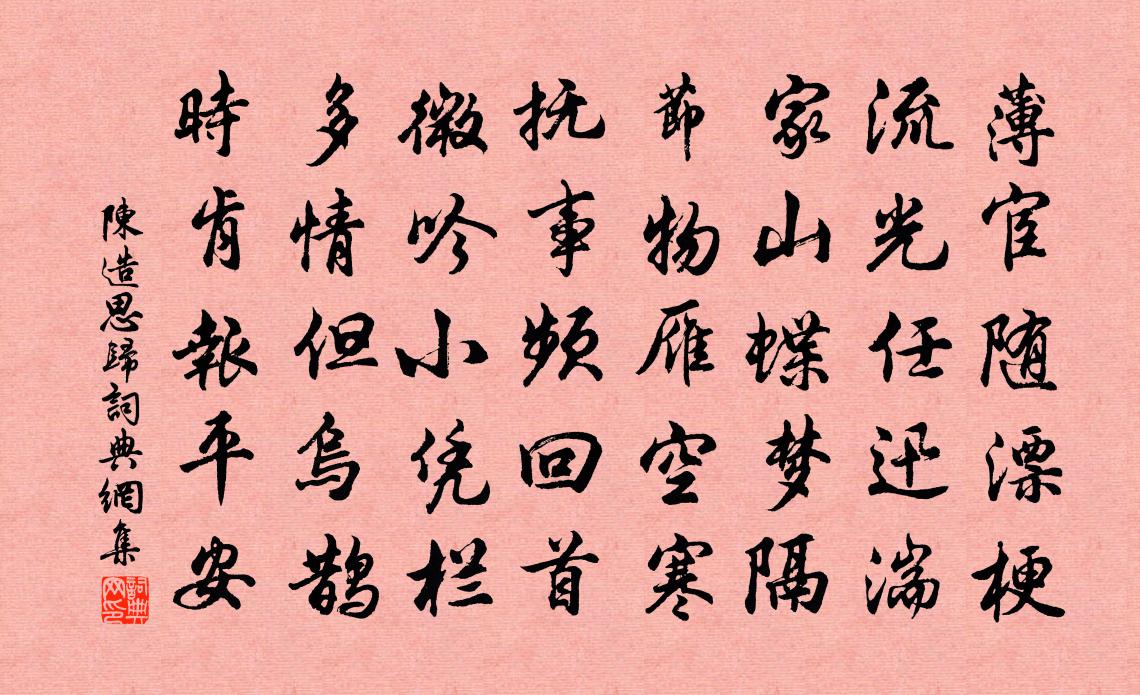 薄宦随漂梗
流光任迅湍
家山蝶梦隔
節物雁空寒
抚事频回首
微吟小凭栏
多情但烏鹊
時肯報平安
陳造思歸詞典網集
詞典网印